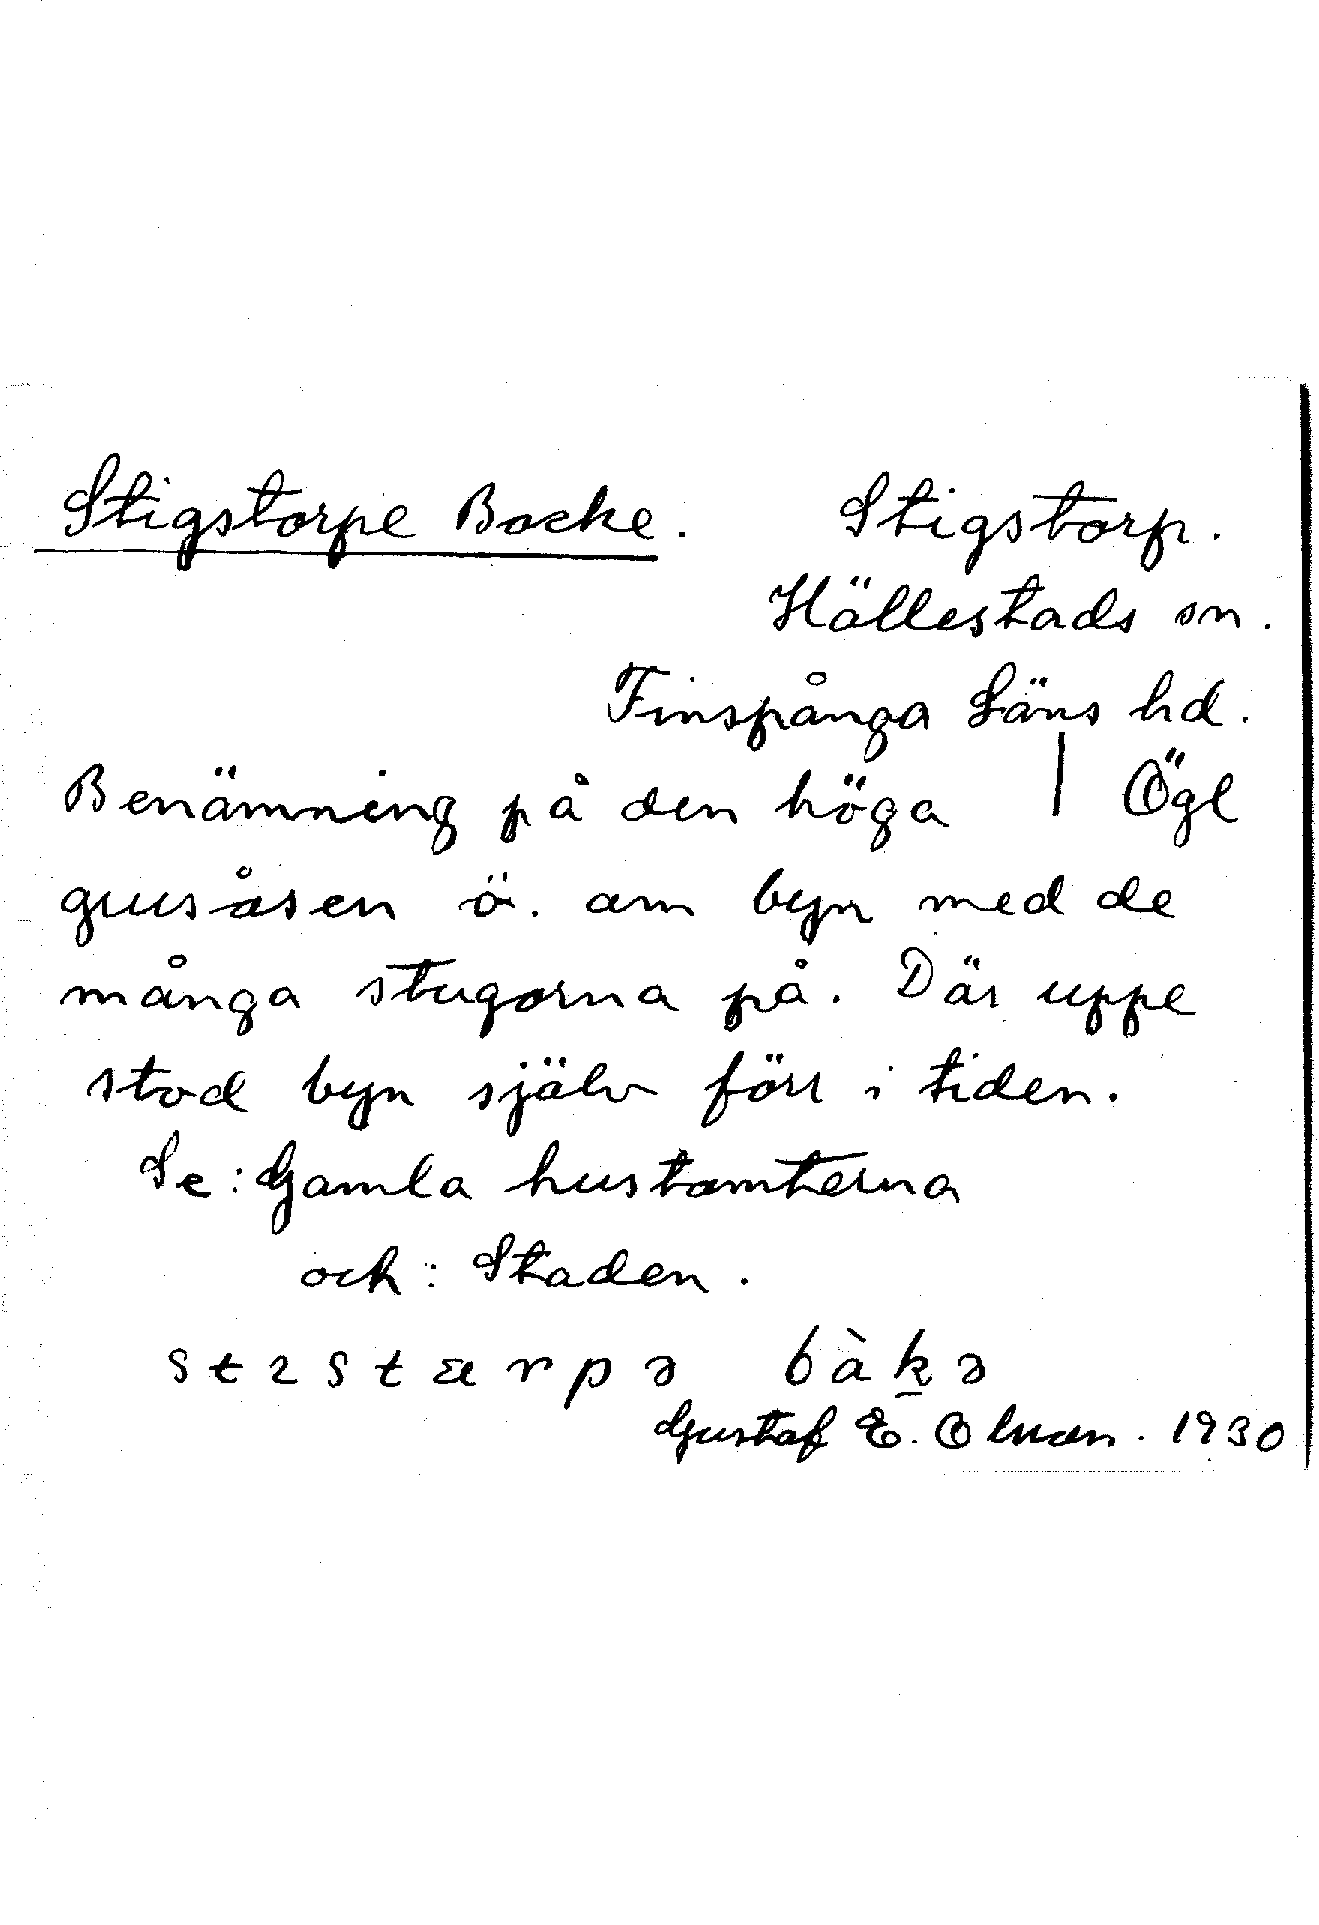 Stigstorpe Backe. Stigstorp.
Hällestads sn.
Finspånga Läns hd.
Benämning på den höga | Ögl
grusåsen ö. om byn med de
många stugorna på. Där uppe
stod byn själv förr i tiden.
Se: Gamla hustomterna
och: Staden.
stɪstærpə bàk̲ə
Gustaf E. 1930